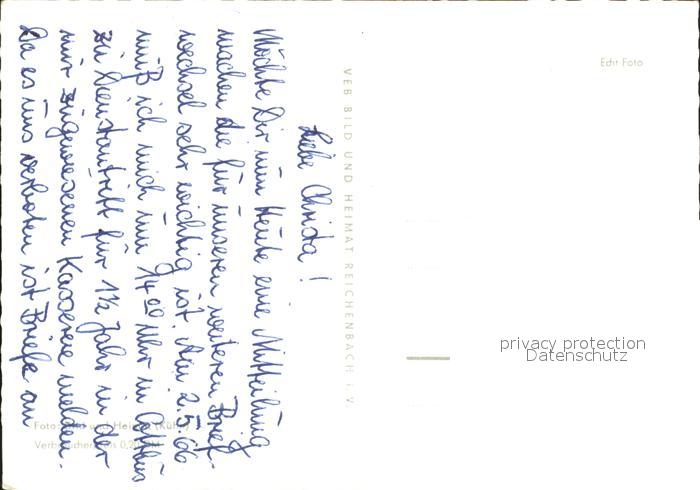 Liebe Christa!
Möchte Dir nun Heute eine Mitteilung
machen die für unseren weiteren Brief-
wechsel sehr wichtig ist. Am 2.5.66
muß ich mich um 14 00 Uhr in Cottbus
zu Dienstantritt für 1½ Jahr in der
mir zugewiesenen Kasserne melden.
Da es uns verboten ist Briefe an
VEB BILD UND HEIMAT REICHENBACH i. V.
Echt Foto
Foto: Bild und Heimat (Kühn)
Verbraucherpreis 0,20 DM
privacy protection
Datenschutz